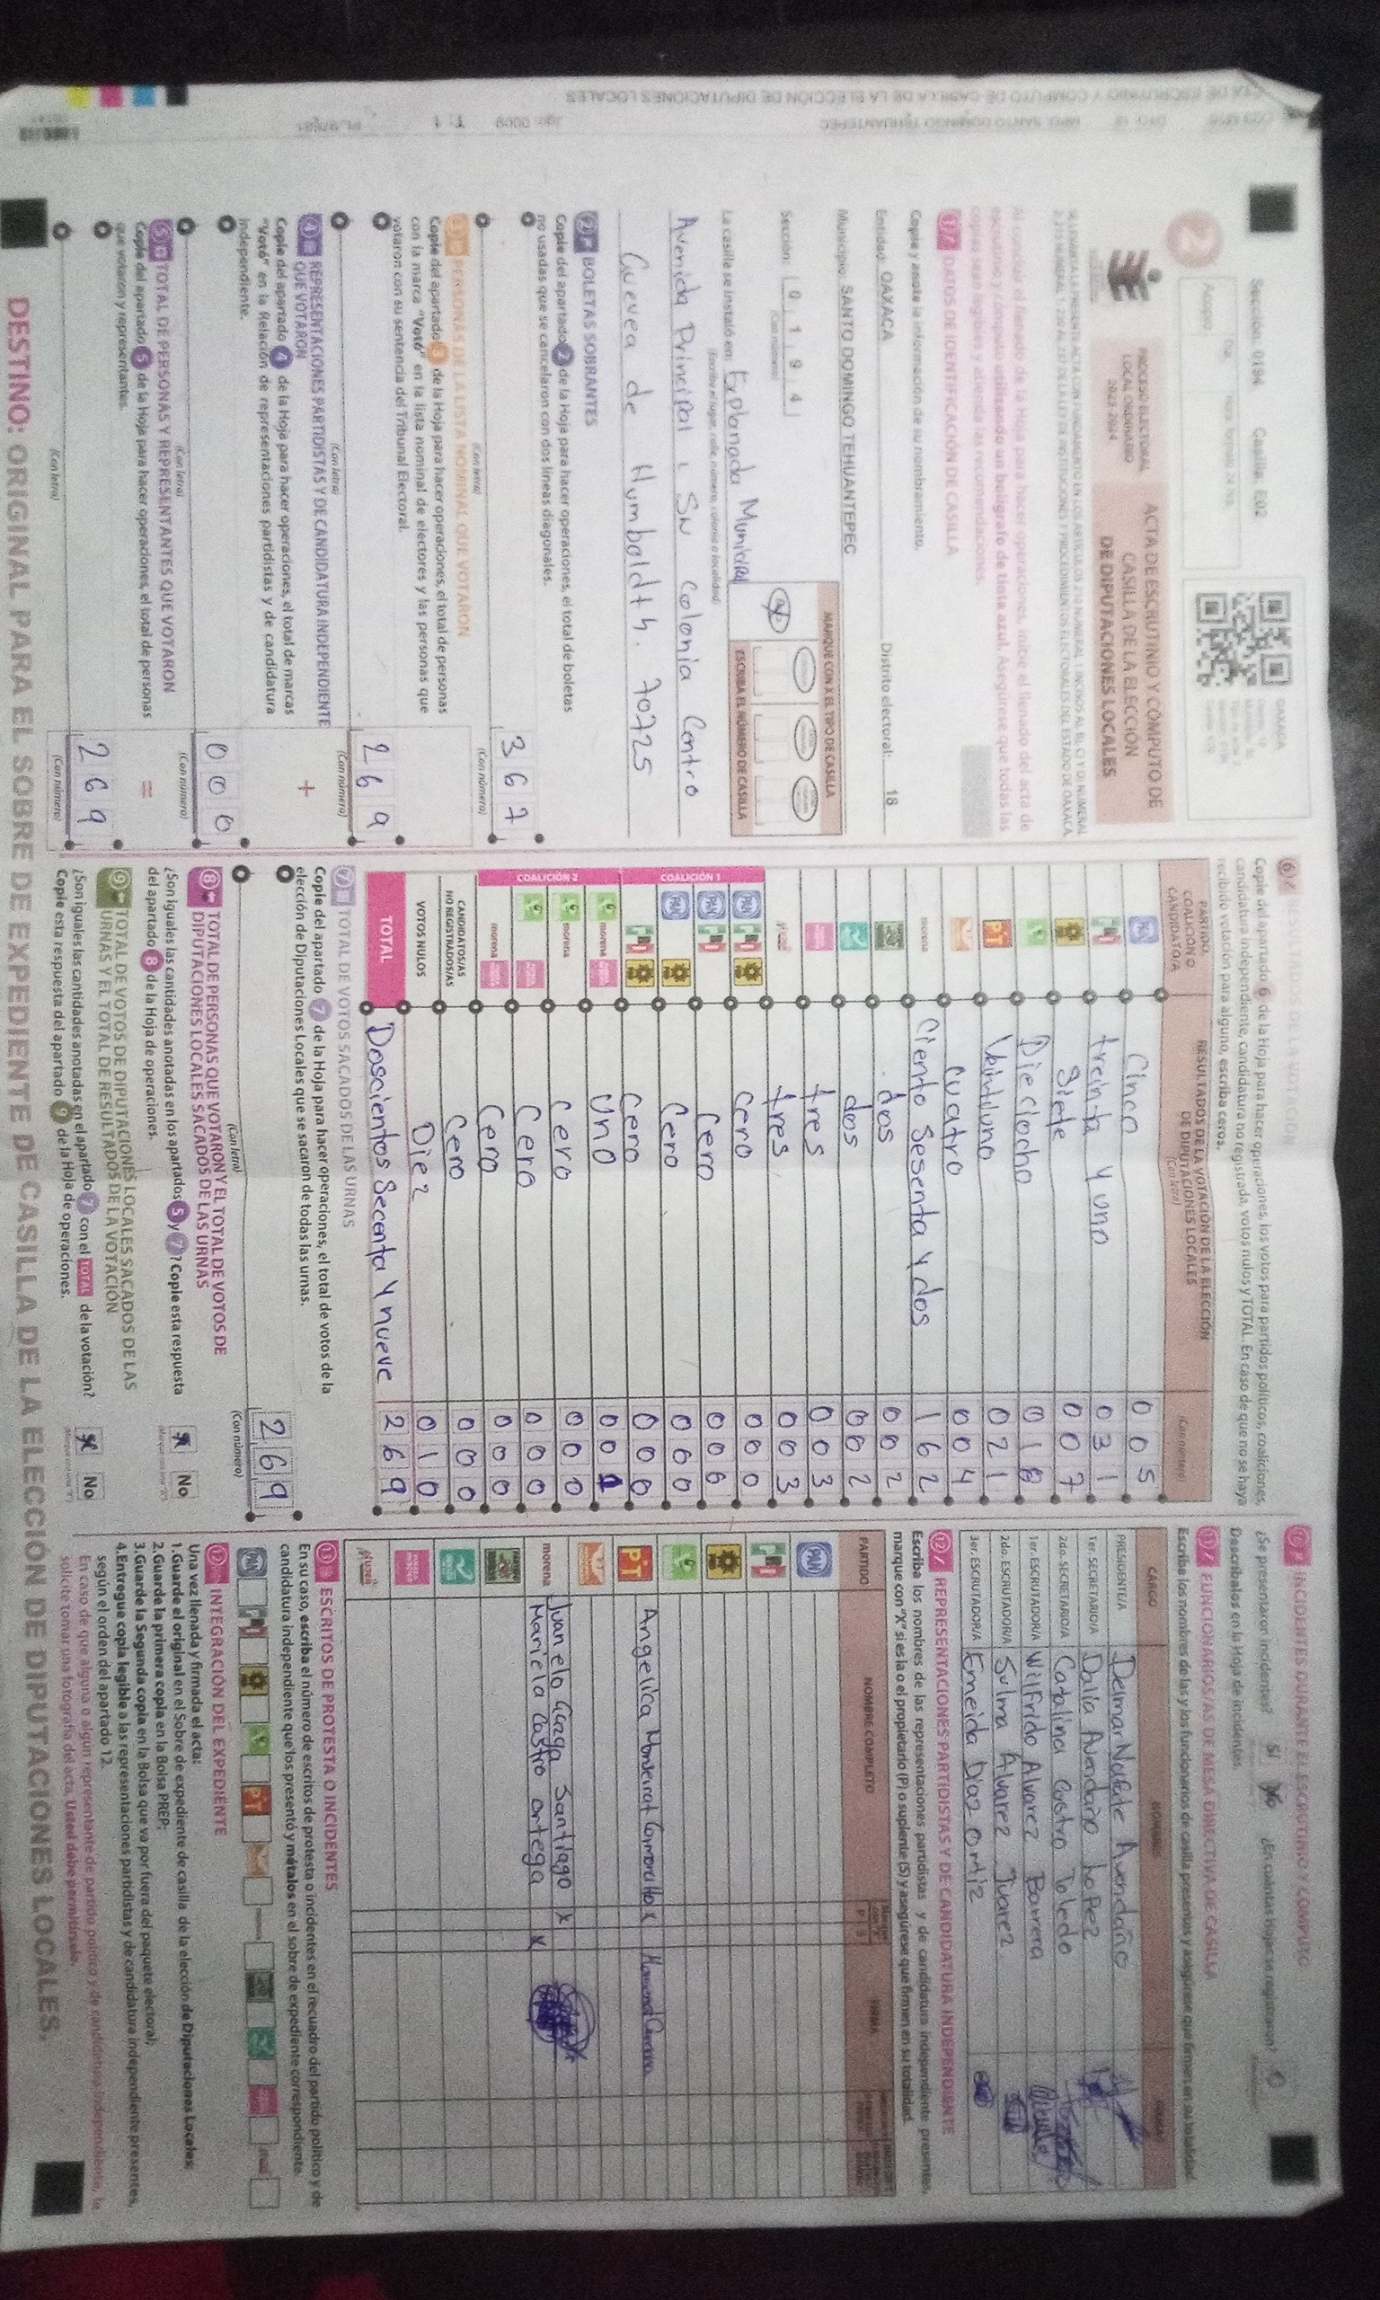 Sección: 0194 Casilla: E02
OAXACA
2
Acopio
PROCESO ELECTORAL
LOCAL ORDINARIO
2023-2024
ACTA DE ESCRUTINIO Y CÓMPUTO DE
CASILLA DE LA ELECCIÓN
DE DIPUTACIONES LOCALES
1 DATOS DE IDENTIFICACIÓN DE CASILLA
Copie y anote la información de su nombramiento.
Entidad: OAXACA Distrito electoral: 18
Municipio: SANTO DOMINGO TEHUANTEPEC
Sección: 0 1 9 4
(Con número)
MARQUE CON X EL TIPO DE CASILLA
ESCRIBA EL NÚMERO DE CASILLA
La casilla se instaló en: Explanada Municipal
(Escriba el lugar, calle, número, colonia o localidad)
Avenida Principal, SN Colonia Centro
Cuevea de Humboldth. 70725
2 BOLETAS SOBRANTES
Copie del apartado 2 de la Hoja para hacer operaciones, el total de boletas
no usadas que se cancelaron con dos líneas diagonales.
3 6 7
(Con letra) (Con número)
3 PERSONAS DE LA LISTA NOMINAL QUE VOTARON
Copie del apartado 3 de la Hoja para hacer operaciones, el total de personas
con la marca "Votó" en la lista nominal de electores y las personas que
votaron con su sentencia del Tribunal Electoral.
2 6 9
(Con letra) (Con número)
4 REPRESENTACIONES PARTIDISTAS Y DE CANDIDATURA INDEPENDIENTE
QUE VOTARON +
Copie del apartado 4 de la Hoja para hacer operaciones, el total de marcas
"Votó" en la Relación de representaciones partidistas y de candidatura
independiente.
0 0 0
(Con letra) (Con número)
5 TOTAL DE PERSONAS Y REPRESENTANTES QUE VOTARON =
Copie del apartado 5 de la Hoja para hacer operaciones, el total de personas
que votaron y representantes.
2 6 9
(Con letra) (Con número)
6 RESULTADOS DE LA VOTACIÓN
Copie del apartado 6 de la Hoja para hacer operaciones, los votos para partidos políticos, coaliciones,
candidatura independiente, candidatura no registrada, votos nulos y TOTAL. En caso de que no se haya
recibido votación para alguno, escriba ceros.
PARTIDO,
COALICIÓN O
CANDIDATO/A
RESULTADOS DE LA VOTACIÓN DE LA ELECCIÓN
DE DIPUTACIONES LOCALES
(Con letra) (Con número)
PAN Cinco 0 0 5
PRI treinta y uno 0 3 1
PRD Siete 0 0 7
Dieciocho 0 1 8
PT 0 2 1
cuatro 0 0 4
morena Ciento Sesenta y dos 1 6 2
dos 0 0 2
dos 0 0 2
tres 0 0 3
tres 0 0 3
COALICIÓN 1
PAN PRI PRD cero 0 0 0
PAN PRI Cero 0 0 0
PAN PRD Cero 0 0 0
PRI PRD Cero 0 0 0
COALICIÓN 2
morena uno 0 0 1
morena cero 0 0 0
Cero 0 0 0
morena Cero 0 0 0
CANDIDATOS/AS
NO REGISTRADOS/AS Cero 0 0 0
VOTOS NULOS Diez 0 1 0
TOTAL Doscientos Secenta y nueve 2 6 9
7 TOTAL DE VOTOS SACADOS DE LAS URNAS
Copie del apartado 7 de la Hoja para hacer operaciones, el total de votos de la
elección de Diputaciones Locales que se sacaron de todas las urnas.
2 6 9
(Con letra) (Con número)
8 TOTAL DE PERSONAS QUE VOTARON Y EL TOTAL DE VOTOS DE
DIPUTACIONES LOCALES SACADOS DE LAS URNAS
¿Son iguales las cantidades anotadas en los apartados 5 y 7? Copie esta respuesta
del apartado 8 de la Hoja de operaciones.
No
9 TOTAL DE VOTOS DE DIPUTACIONES LOCALES SACADOS DE LAS
URNAS Y EL TOTAL DE RESULTADOS DE LA VOTACIÓN
¿Son iguales las cantidades anotadas en el apartado 7 con el TOTAL de la votación?
Copie esta respuesta del apartado 9 de la Hoja de operaciones.
No
INCIDENTES DURANTE EL ESCRUTINIO Y CÓMPUTO
¿Se presentaron incidentes? Sí No ¿En cuántas hojas se registraron?
Descríbalos en la Hoja de incidentes.
11 FUNCIONARIOS/AS DE MESA DIRECTIVA DE CASILLA
Escriba los nombres de las y los funcionarios de casilla presentes y asegúrese que firmen en su totalidad.
CARGO NOMBRE FIRMA
PRESIDENTE/A Delmar Avendaño
1er. SECRETARIO/A Dalia Avendaño Lopez
2do. SECRETARIO/A Catalina Castro Toledo
1er. ESCRUTADOR/A Wilfrido Alvarez Barrera
2do. ESCRUTADOR/A Sulma Alvarez Juarez
3er. ESCRUTADOR/A Eneida Diaz Ortiz
12 REPRESENTACIONES PARTIDISTAS Y DE CANDIDATURA INDEPENDIENTE
Escriba los nombres de las representaciones partidistas y de candidatura independiente presentes,
marque con "X" si es la o el propietario (P) o suplente (S) y asegúrese que firmen en su totalidad.
PARTIDO NOMBRE COMPLETO FIRMA
PAN
PRI
PRD
PT Angelica Monserrat x
morena Juanelo Santiago x
Mariela Castro Ortega x
13 ESCRITOS DE PROTESTA O INCIDENTES
En su caso, escriba el número de escritos de protesta o incidentes en el recuadro del partido político y de
candidatura independiente que los presentó y métalos en el sobre de expediente correspondiente.
INTEGRACIÓN DEL EXPEDIENTE
Una vez llenada y firmada el acta:
1.Guarde el original en el Sobre de expediente de casilla de la elección de Diputaciones Locales;
2.Guarde la primera copia en la Bolsa PREP;
3.Guarde la Segunda copia en la Bolsa que va por fuera del paquete electoral;
4.Entregue copia legible a las representaciones partidistas y de candidatura independiente presentes,
según el orden del apartado 12.
En caso de que alguna o algún representante de partido político y de candidatura independiente, la
solicite tomar una fotografía del acta, Usted debe permitírselo.
DESTINO: ORIGINAL PARA EL SOBRE DE EXPEDIENTE DE CASILLA DE LA ELECCIÓN DE DIPUTACIONES LOCALES.